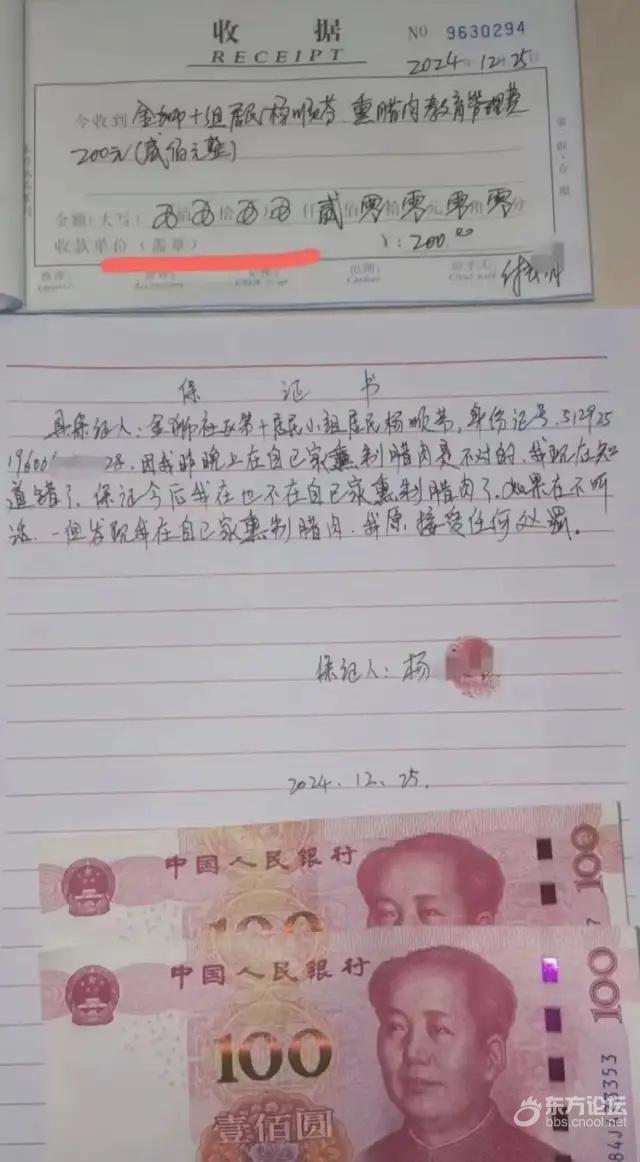 收据
RECEIPT
№ 9630294
2024年12月25日
今收到 金狮十组居民杨顺芬 熏腊肉教育管理费
200元(贰佰元整)
金额(大写) 佰 拾 万 仟 贰佰零拾零元零角零分
¥:200.00
收款单位(盖章)
第一联:存根
保 证 书
具保证人:金狮社区第十居民小组居民杨顺芬,身份证号,512925
19600 28,因我昨晚上在自己家熏制腊肉是不对的,我现在知
道错了,保证今后我在也不在自己家熏制腊肉了,如果在不听
话,一但发现我在自己家熏制腊肉,我原接受任何处罚。
保证人:杨
2024.12.25.
中国人民银行
100
100
中国人民银行
100
100
壹佰圆
东方论坛
bbs.cnool.net